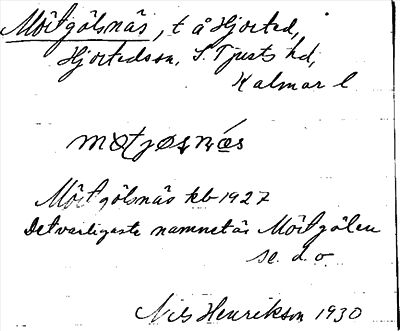 Mörtgölsnäs, t å Hjorted,
Hjorteds sn, S. Tjusts hd,
Kalmar l
Mörtgölsnäs kb 1927
Det vanligaste namnet är Mörtgölen
se. d. o.
Nils Henrikson 1930